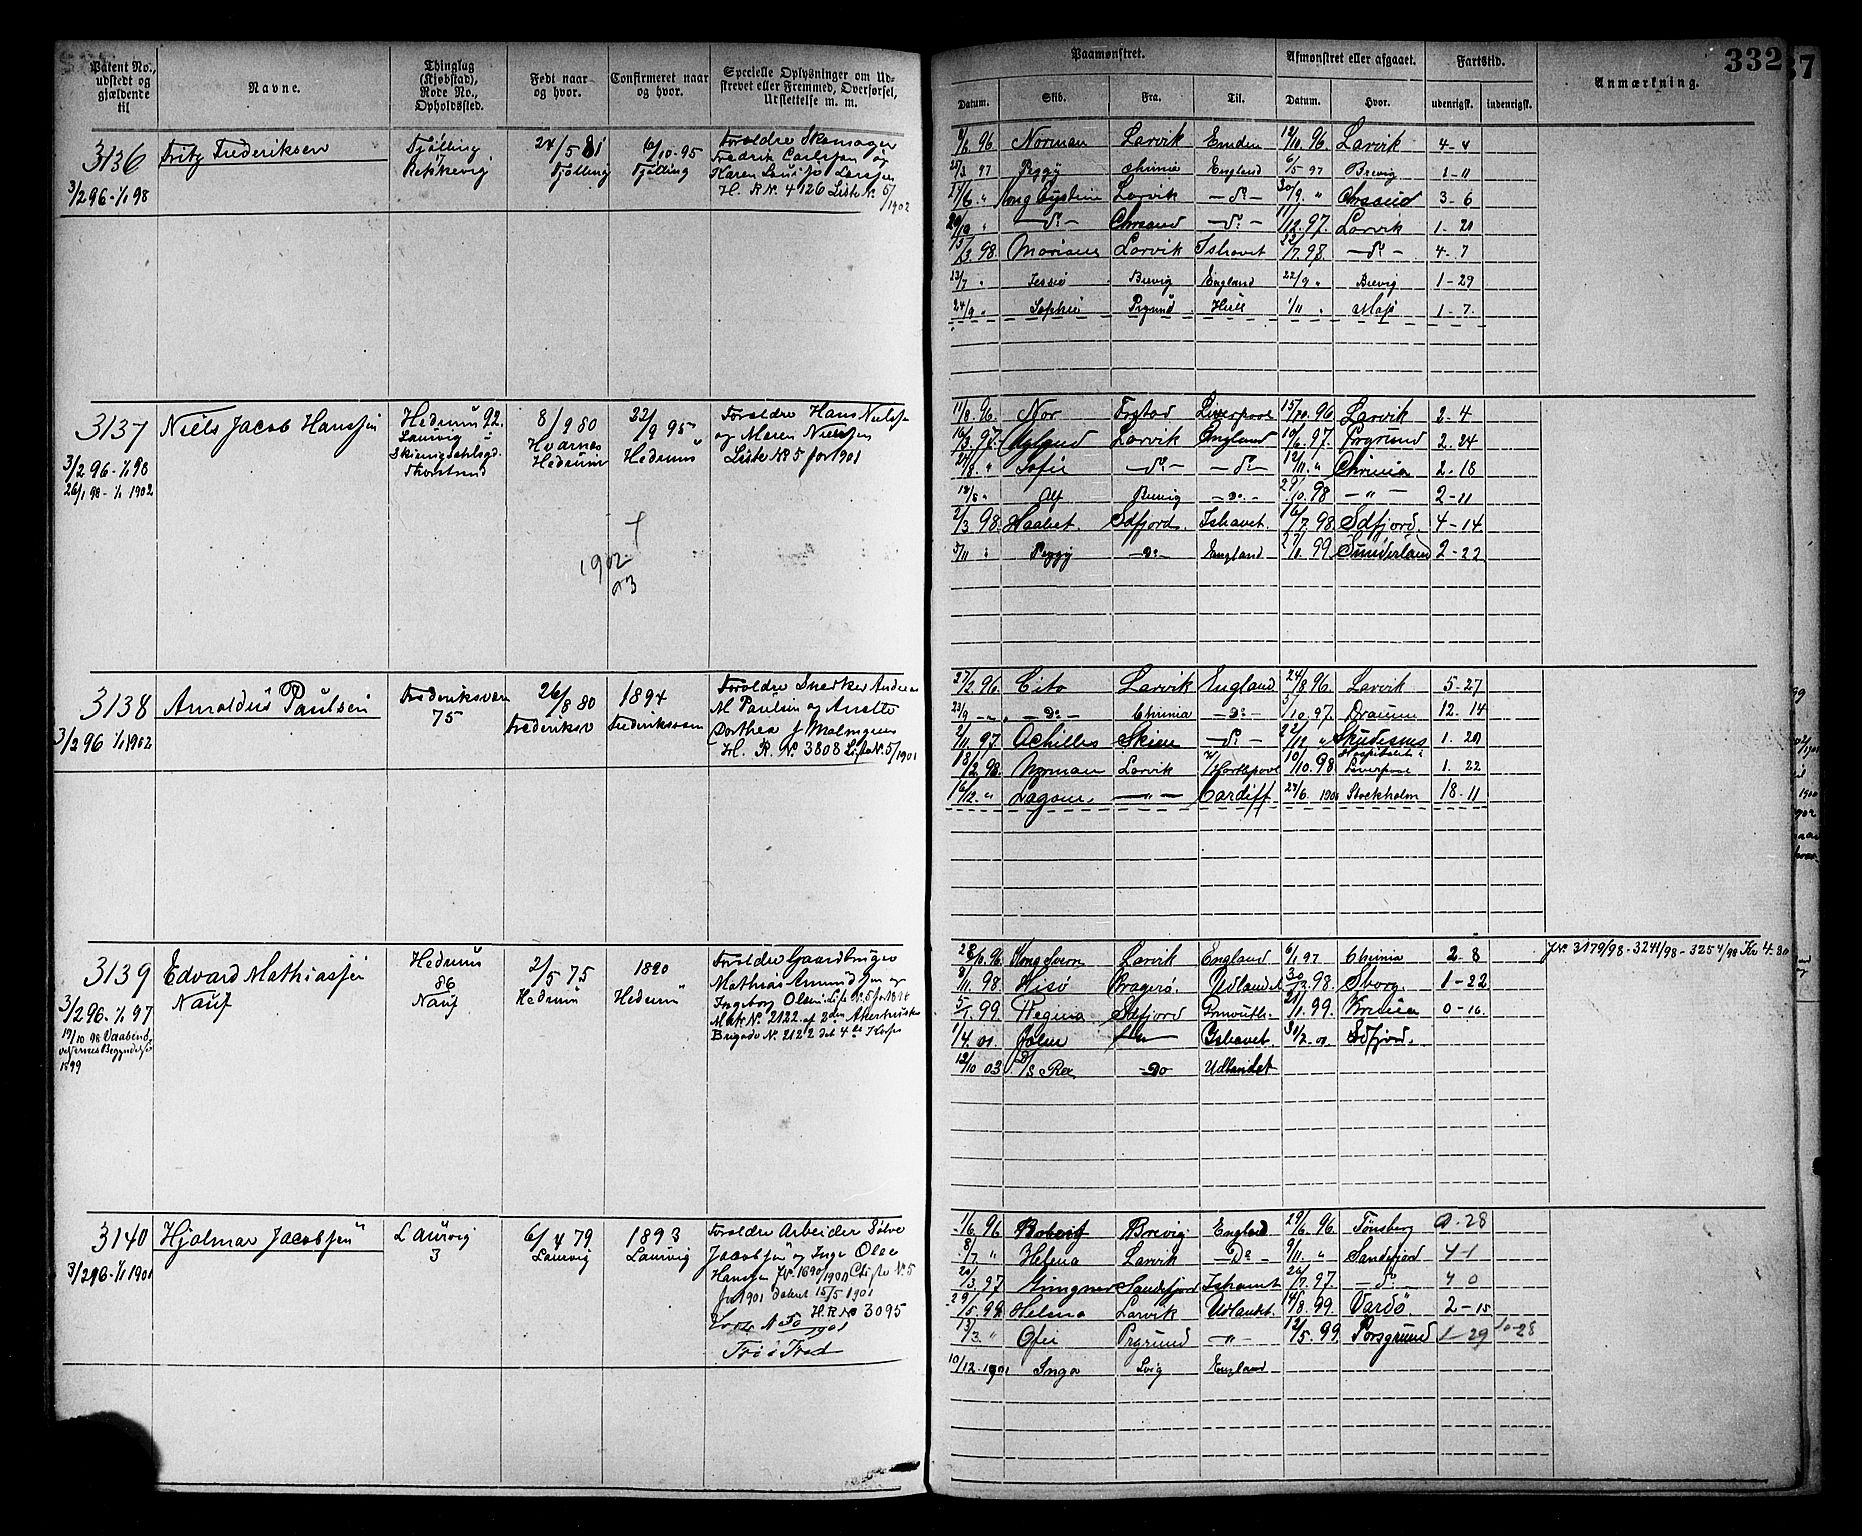 332
7
Patent No., udstedt og gjældende til
Navne.
Thinglag (Kjøbstad), Rode No., Opholdssted.
Født naar og hvor.
Confirmeret naar og hvor.
Specielle Oplysninger om Udskrevet eller Fremmed, Overførsel, Udslettelse m. m.
Paamønstret.
Afmønstret eller afgaaet.
Fartstid.
Anmærkning.
Datum. Skib. Fra. Til. Datum. Hvor. udenrigsk. indenrigsk.
3136 Fritz Frederiksen
3/2 96 - 1/1 98
Tjølling
7
Rekkevig
24/5 81
Tjølling
6/10 - 95
Tjølling
Forældre Skomager
Fredrik Carlsen og
Karen Lovise Larsen
H. R N. 4126 Liste N. 5/1902
9/6 96 Norman Larvik Emden 12/10 96 Larvik 4 - 4
27/3 97 Peggy Chrinia England 6/5 97 Brevig 1 - 11
17/6 " Kong Eystein Larvik - do - 30/9 " Chrsand 3 - 6
20/10 " - do - Chrsand - do - 11/12 97. Larvik 1 - 21
13/3 98 Mariane Larvik Ishavet 22/7 98. - do - 4 - 7
23/7 " Jessie Brevig England 22/9 " Brevig 1 - 29
24/9 " Sophie Prgrund Hull 1/11 " Moss 1 - 7.
3137 Niels Jacob Hanssen
3/2 96 - 1/1 98
26/1 98 - 1/1 1902
Hedrum 92.
Laurvig
8/9 80
Hvarnes
Hedrum
22/9 95
Hedrum
Forældre Hans Nielsen
og Maren Nielsen
Liste N. 5 for 1901
1902
23
11/8 96. Nor Frstad Liverpool 15/10 96 Larvik 2 - 4
16/3 97. Larvik England 10/6 97. Prgrund 2 - 24
27/8 " Sofie - do - - do - 12/11 " Chrinia 2 - 18
18/5 " Alf Brevig - Do - 29/10. 98 - " - 2 - 11
2/3 98 Haabet Sdfjord. Ishavet. 16/7 98 Sdfjord. 4 - 14
5/11 " Peggy - Do - England 27/1. 99 Sunderland 2 - 22
3138 Arnoldus Paulsen
3/2 96 1/1 1902
Frederiksværn
75
26/8 80
Frederiksv
1894
Frederiksværn
Forældre Snedker Andreas
M. Paulsen og Anette
Dorthea J Malmgren
H. R. N. 3808 Liste N. 5/1901
27/2 96. Cito Larvik England 24/8 96 Larvik 5 - 27
23/9 - " - - Do - Chrinia - Do - 3/10. 97. Drammen 12. 14
2/11 97. Achilles Skien - do - 22/12 " Skudesnes 1. 20
18/2 98. Norman Larvik W/Hartlepool 10/10. 98 Hospitalet i Liverpool 1. 22
16/12. " Lagom. - " - Cardiff 27/6. 1901 Stockholm 18 - 11
3139 Edvard Mathiassen
Nauf
3/2 96. 1/1 97
19/10 98 Vaabenøvelsernes Begyndelse 1899
Hedrum
86
Nauf
2/5 75
Hedrum
1890
Hedrum
Forældre Gaardbruger
Mathias Amundsen og
Ingeborg Olsen Liste N. 5 for 1894
Matr N. 2122 af 2den Akershuske
Brigade N. 2122 det 4de Korps
28/10 96 Kong Sverre Larvik England 6/1 97 Chrinia 2. 8
8/11. 98 Hisø Bragerø. Udlandet 30/12 98. Sborg. 1 - 22
5/1 99. Regina Sdfjord 21/1. 99. 0 - 16.
1/4. 01. Ishavet. 31/2 01 Sdfjord.
12/10 03 D/S Rex - Do Udlandet
J.N. 3179/98 - 3241/98 - 3254/99 Kr 4.30
3140 Hjalmar Jacobsen
3/2 96 - 1/1 1901
Laurvig
3
6/4 79
Laurvig
1893
Laurvig
Forældre Arbeider Sølve
Jacobsen og Inger Olea
Hansen J.N. 1690/1900 Liste N. 5
for 1901 dateret 15/5 1901
H. R. No 3095
1901
1/6 96 Brevig England 29/6. 96. Tønsberg 0. 28
8/7 " Helena Larvik - Do - 9/11. " Sandefjord 4 - 1
20/3. 97 Gungner Sandefjord Ishavet 26/7. 97. - do - 4 0
29/5. 99. Helena Larvik Udlandet 14/8. 99. Vardø 2 - 15
13/3. " Ofir Prgrund - " - 12/5. 99. Porsgrund 1 - 29 10 - 28
10/12. 1901 Inga Lvig England